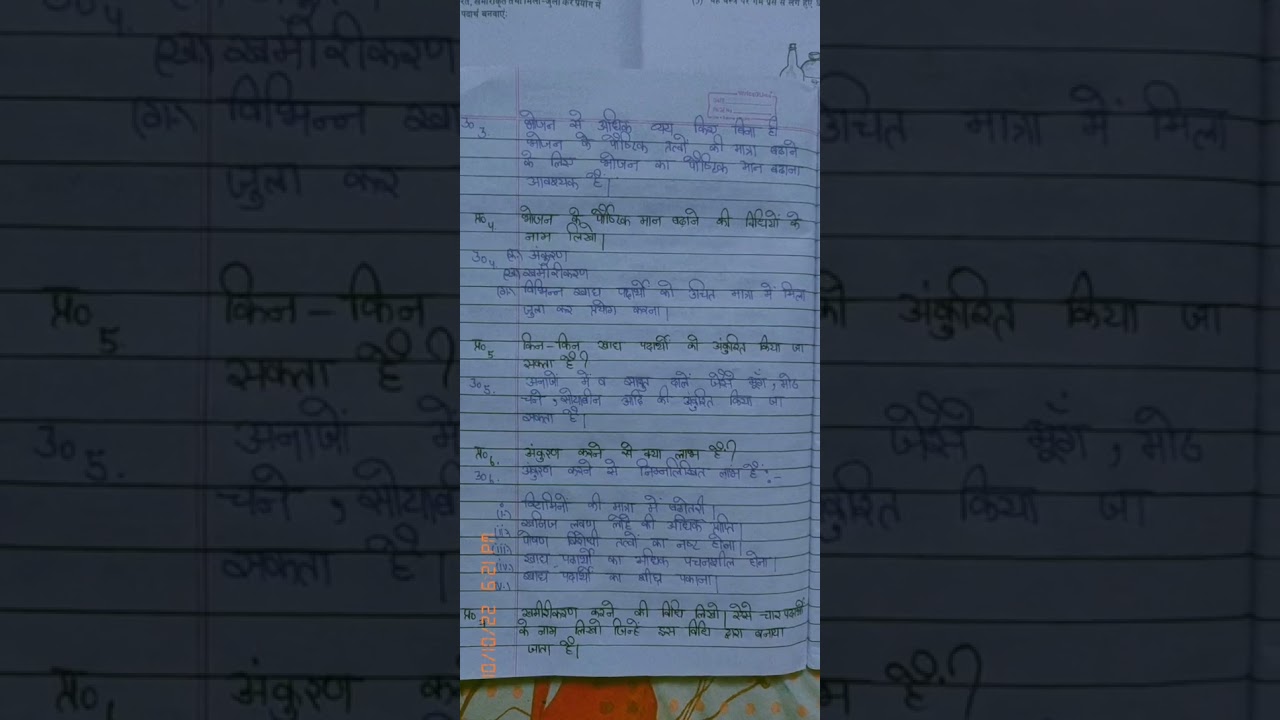 पदार्थ बनवाएं:
उ०3 भोजन से अधिक व्यय किए बिना ही
भोजन के पौष्टिक तत्वों की मात्रा बढ़ाने
के लिए भोजन का पौष्टिक मान बढ़ाना
आवश्यक है।
प्र०4 भोजन के पौष्टिक मान बढ़ाने की विधियों के
नाम लिखो।
उ०4 (क) अंकुरण
(ख) खमीरीकरण
(ग) विभिन्न खाद्य पदार्थों को उचित मात्रा में मिला
जुला कर प्रयोग करना।
प्र०5 किन-किन खाद्य पदार्थों को अंकुरित किया जा
सकता है?
उ०5. अनाजों में व साबुत दालें जैसे मूँग, मोठ
चने, सोयाबीन आदि को अंकुरित किया जा
सकता है।
प्र०6. अंकुरण करने से क्या लाभ है?
उ०6. अंकुरण करने से निम्नलिखित लाभ हैं:-
(i.) विटामिनों की मात्रा में बढोतरी।
(ii.) खनिज लवण लोहे की अधिक प्राप्ति।
(iii.) पोषण विरोधी तत्वों का नष्ट होना।
(iv.) खाद्य पदार्थों का अधिक पचनशील होना।
(v.) खाद्य पदार्थों का शीघ्र पकाना।
प्र०7 खमीरीकरण करने की विधि लिखो। ऐसे चार पदार्थों
के नाम लिखो जिन्हें इस विधि द्वारा बनाया
जाता है।